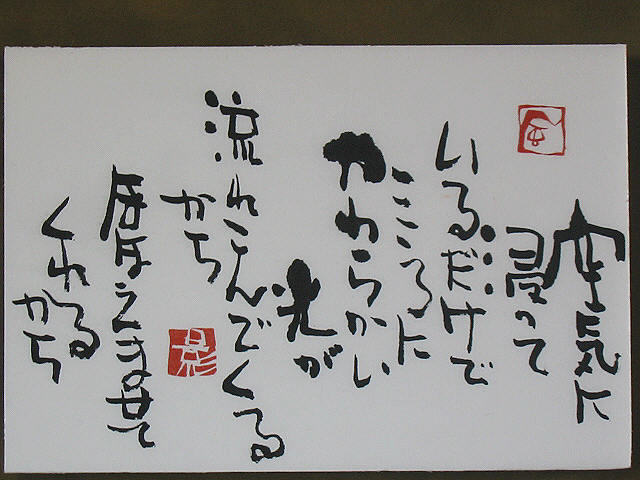 空気に
浸って
いるだけで
こころに
やわらかい
光が
流れこんでくる
から
ほほえませて
くれるから